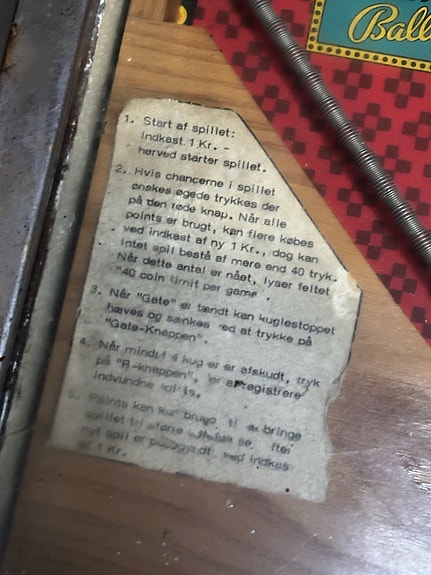 Bally
1. Start af spillet:
Indkast 1 Kr. -
herved starter spillet.
2. Hvis chancerne i spillet
ønskes øgede trykkes der
på den røde knap. Når alle
points er brugt, kan flere købes
ved indkast af ny 1 Kr., dog kan
intet spil bestå af mere end 40 tryk.
Når dette antal er nået, lyser feltet
"40 coin limit per game".
3. Når "Gate" er tændt kan kuglestoppet
hæves og sænkes ved at trykke på
"Gate-Knappen".
4. Når mindst 4 kugler er afskudt, tryk
på "R-knappen", for at registrere
indvundne points.
5. Points kan kun bruges til at bringe
spillet til større
nyt spil er påbegyndt ved indkast
af 1 Kr.